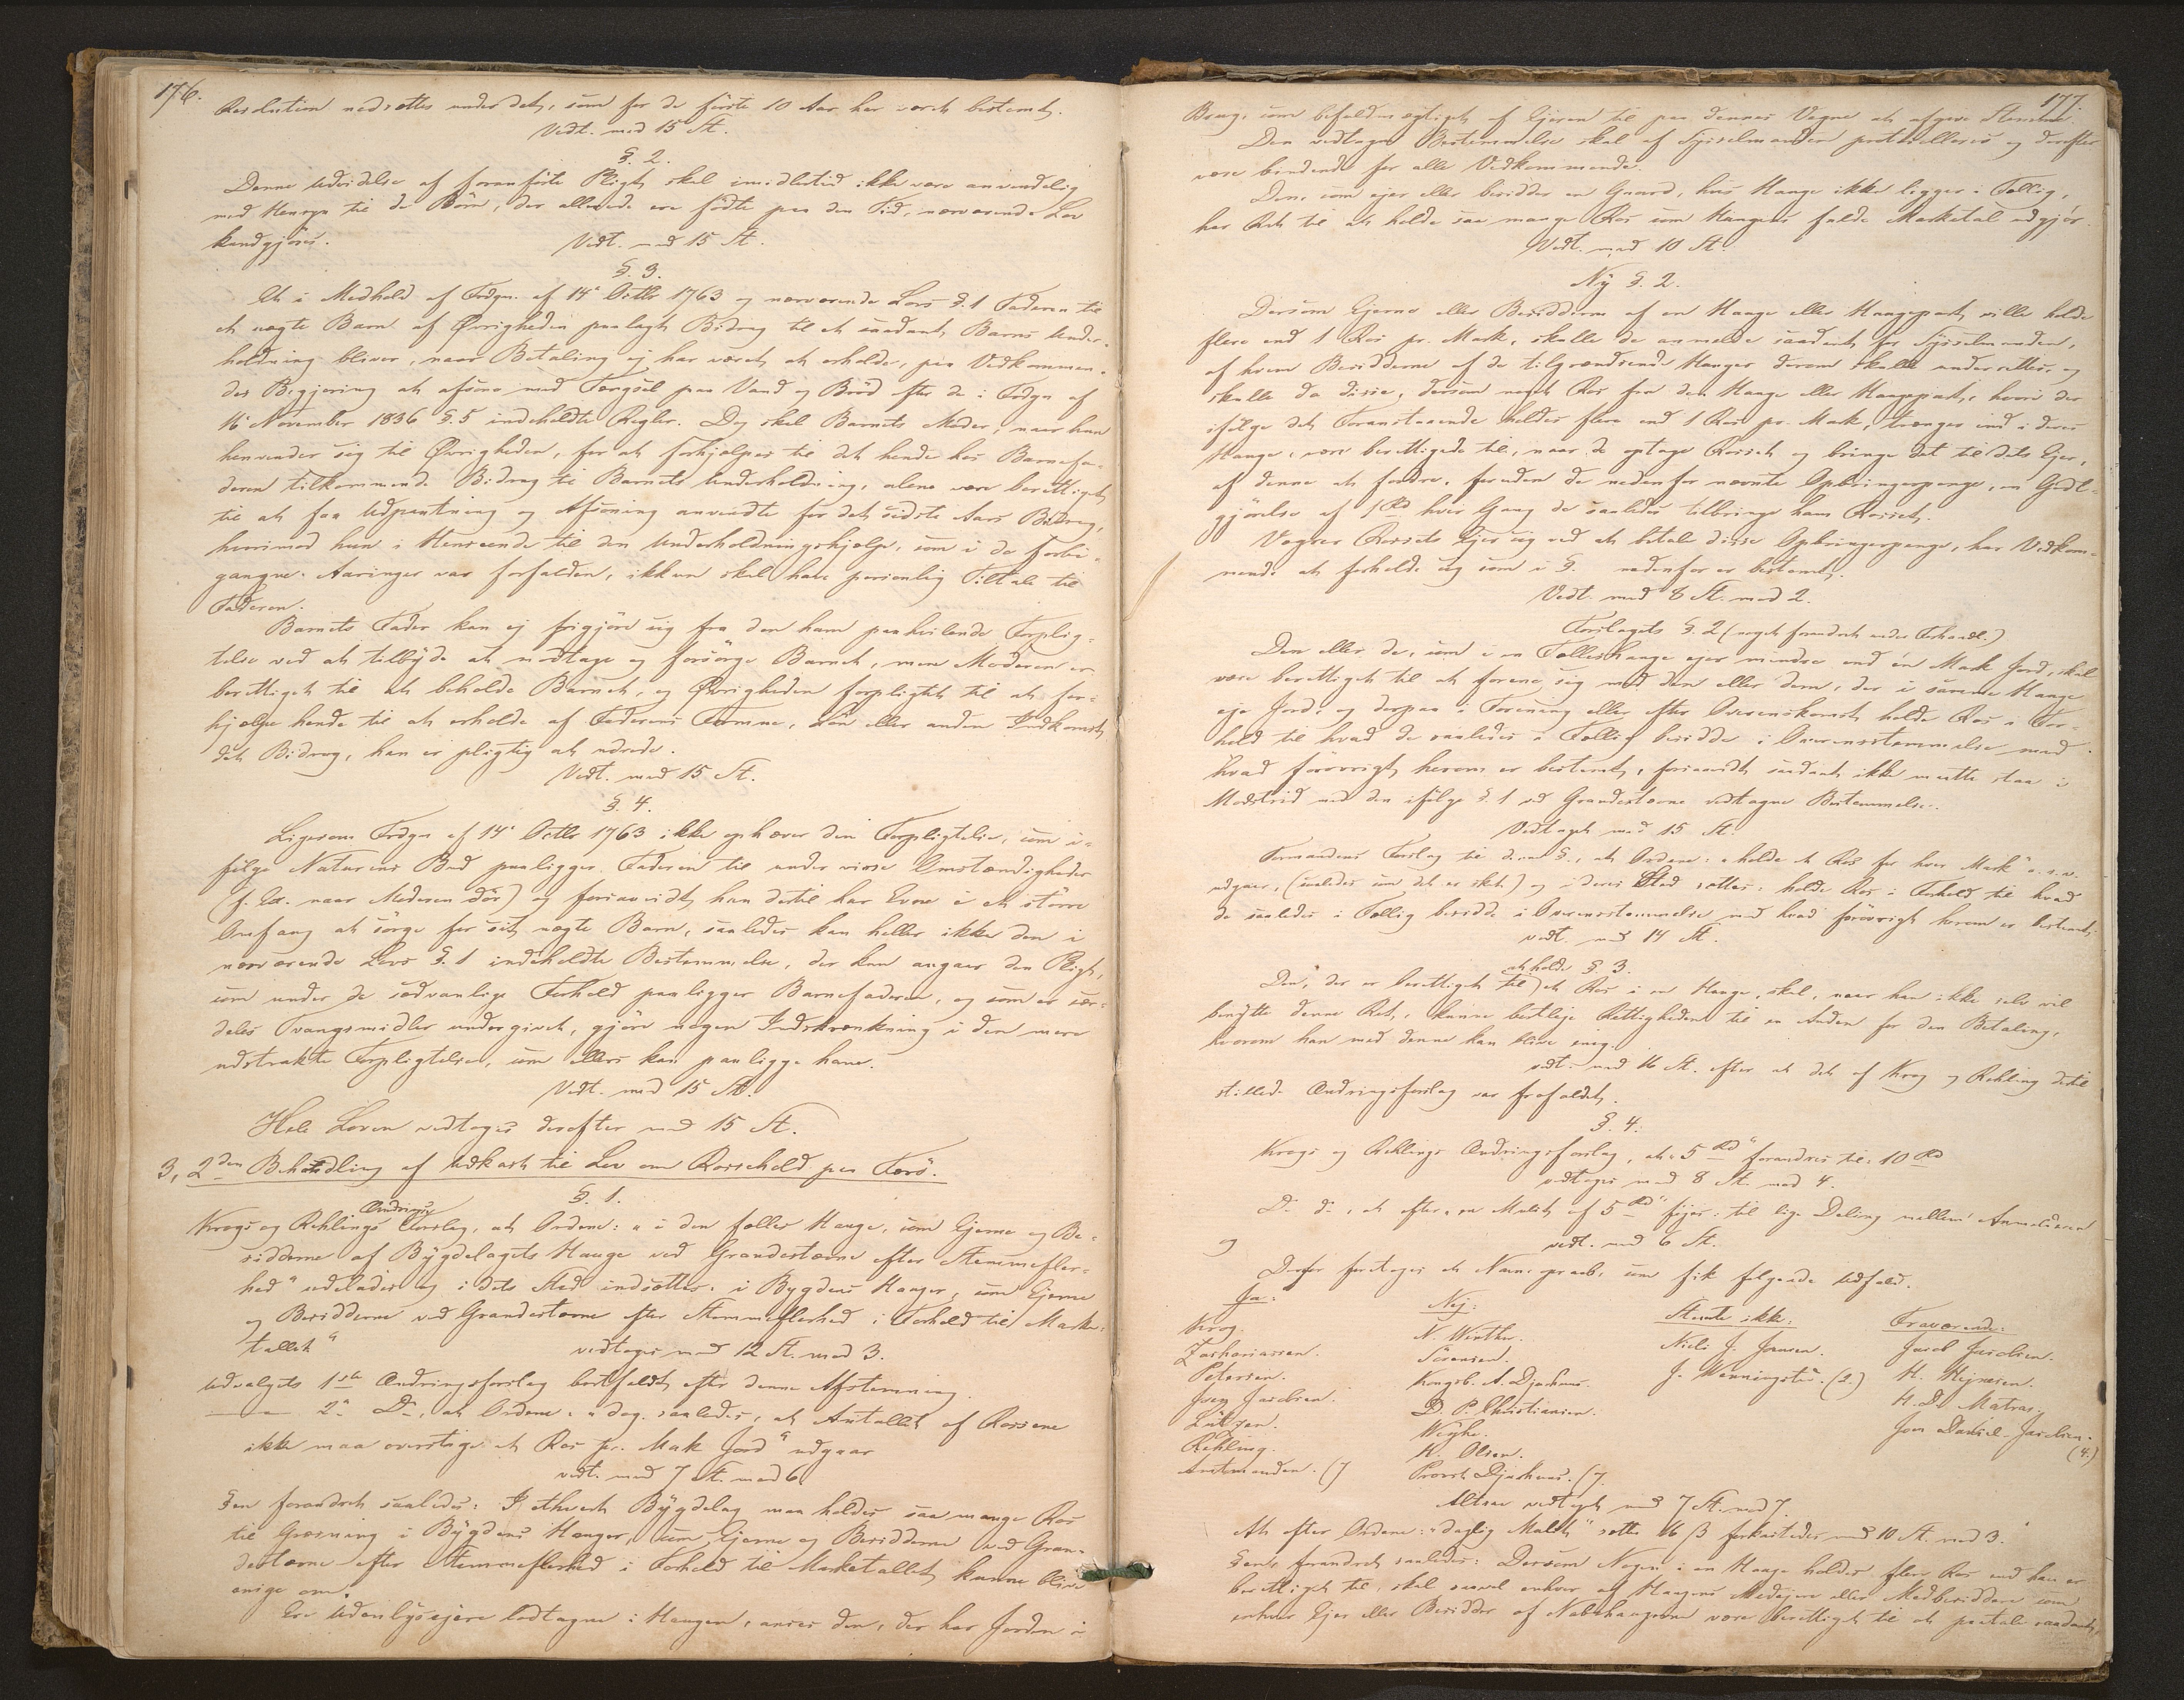 176.
Resolution nedsættes under det, som for de første 10 Aar har været bestemt.
Vedt. med 15 St.
§. 2.
Denne Udvidelse af foranførte Pligt skal imidlertid ikke være anvendelig
med Hensyn til de Børn, der allerede ere fødte paa den Tid, nærværende Lov
kundgjøres.
Vedt. med 15 St.
§. 3.
Et i Medhold af Frdgn. af 14de Octbr 1763 og nærværende Lovs §. 1 Faderen til
et uægte Barn af Øvrigheden paalagt Bidrag til et saadant Barns Under-
holdning bliver, naar Betaling ej har været at erholde, paa Vedkommen-
des Begjæring at afsone med Fængsel paa Vand og Brød efter de i Frdgn af
16de November 1836 §. 5 indeholdte Regler. Dog skal Barnets Moder, naar hun
henvender sig til Øvrigheden, for at forhjælpes til det hende hos Barnefa-
deren tilkommende Bidrag til Barnets Underholdning, alene være berettiget
til at faa Udpantning og Afsoning anvendte for det sidste Aars Bidrag,
hvorimod hun i Henseende til den Underholdningshjælp, som i de forbi-
gangne Aaringer var forfalden, ikkun skal have personlig Tiltale til
Faderen.
Barnets Fader kan ej frigjøre sig fra den ham paahvilende Forplig-
telse ved at tilbyde at modtage og forsørge Barnet, men Moderen er
berettiget til at beholde Barnet, og Øvrigheden forpligtet til at for-
hjælpe hende til at erholde af Faderens Formue, Løn eller anden Indkomst
det Bidrag, han er pligtig at udrede.
Vedt. med 15 St.
§. 4.
Ligesom Frdgn af 14de Octbr 1763 ikke ophæver den Forpligtelse, som i-
følge Naturens Bud paaligger Faderen til under visse Omstændigheder
(f. Ex. naar Moderen dør) og forsaavidt han dertil har Evne i et større
Omfang at sørge for sit uægte Barn, saaledes kan heller ikke den i
nærværende Lovs §. 1 indeholdte Bestemmelse, der kun angaaer den Pligt,
som under de sædvanlige Forhold paaligger Barnefaderen, og som er sær-
deles Tvangsmidler undergivet, gjøre nogen Indskrænkning i den mere
udstrakte Forpligtelse, som ellers kan paaligge ham.
Vedt. med 15 St.
Hele Loven vedtoges derefter med 15 St.
3, 2den Behandling af Udkast til Lov om Rossehold paa Færø.
§. 1.
Krogs og Rehlings Ændringsforslag, at Ordene: "i den fælles Hauge, som Ejerne og Be-
sidderne af Bygdelagets Hauge ved Grandestævne efter Stemmefler-
hed" udelades og i dets Sted indsættes: i Bygdens Hauger, som Ejerne
og Besidderne ved Grandestævne efter Stemmeflerhed i Forhold til Marke-
tallet"
vedtoges med 12 St. mod 3.
Udvalgets 1ste Ændringsforslag bortfaldt efter denne Afstemning.
—— 2det Do, at Ordene: "dog saaledes, at Antallet af Rossene
ikke maa overstige et Ros pr. Mark Jord" udgaar
vedt. med 7 St. mod 6
§en forandret saaledes: I ethvert Bygdelag maa holdes saa mange Ros
til Græsning i Bygdens Hauger, som Ejerne og Besidderne ved Gran-
destævne efter Stemmeflerhed i Forhold til Marketallet kunne blive
enige om.
Ere Udenbygsejere lodtagne i Haugen, anses den, der har Jorden i
177.
Brug, som befuldmægtiget af Ejeren til paa dennes Vegne at afgive Stemme.
Den vedtagne Bestemmelse skal af Sysselmanden protocolleres og derefter
være bindende for alle Vedkommende.
Den, som ejer eller besidder en Gaard, hvis Hauge ikke ligger i Fællig,
har Ret til at holde saa mange Ros som Haugens fulde Marketal udgjør.
Vedt. med 10 St.
Ny §. 2.
Dersom Ejerne eller Besidderne af en Hauge eller Haugepart ville holde
flere end 1 Ros pr. Mark, skulle de anmelde saadant for Sysselmanden,
af hvem Besidderne af de tilgrændsende Hauger derom skulle underrettes, og
skulle da disse, dersom noget Ros fra den Hauge eller Haugepart, hvori der
ifølge det Foranstaaende holdes flere end 1 Ros pr. Mark, trænger ind i deres
Hauge, være berettigede til, naar de optage Rosset og bringe det til dets Ejer,
af denne at fordre, foruden de nedenfor nævnte Opbringerpenge, en Godt-
gjørelse af 1 Rd hver Gang de saaledes tilbringe ham Rosset.
Vægrer Rossets Ejer sig ved at betale disse Opbringerpenge, har Vedkom-
mende at forholde sig som i §. nedenfor er bestemt.
Vedt. med 8 St. mod 2.
Forslagets §. 2 (noget forandret under Forhandl.)
Den eller de, som i en Fælleshauge ejer mindre end én Mark Jord, skal
være berettiget til at forene sig med den eller dem, der i samme Hauge
eje Jord, og derpaa i Forening eller efter Overenskomst holde Ros i For-
hold til hvad de saaledes i Fællig besidde i Overensstemmelse med
hvad forøvrigt herom er bestemt, forsaavidt saadant ikke maatte staa i
Modstrid med den ifølge §. 1 ved Grandestævne vedtagne Bestemmelse.
Vedtaget med 15 St.
Formandens Forslag til denne §., at Ordene: "holde et Ros for hver Mark" o. s. v.
udgaar, (saaledes som det er sket) og i deres Sted sættes: holde Ros i Forhold til hvad
de saaledes i Fællig besidde i Overensstemmelse med hvad forøvrigt herom er bestemt,
vedt. med 14 St.
§. 3.
Den, der er berettiget til at holde et Ros i en Hauge, skal, naar han ikke selv vil
benytte denne Ret, kunne bortleje Rettigheden til en Anden for den Betaling,
hvorom han med denne kan blive enig.
vedt. med 16 St. efter at det af Krog og Rehling dertil
stillede Ændringsforslag var frafaldet.
§. 4.
Krogs og Rehlings Ændringsforslag, at "5 Rd" forandres til: 10 Rd
vedtoges med 8 St. mod 4.
Do do, at efter "en Mulct af 5 Rd" føjes: til lige Deling mellem Anmelderen
og
vedt. med 6 St.
Derfor foretoges et Navneopraab, som fik følgende Udfald.
Ja: Nej: Stemte ikke: Fraværende:
Krog. N. Winther. Niels J. Jensen. Jacob Jacobsen.
Zachariassen. Sørensen. J. Wenningsted. (2.) H. Hejnesen.
Petersen. Kongsb. A. Djurhuus. H. D. Matras.
Joen Jacobsen. D. P. Christiansen. Joen Daniel Jacobsen. (4.)
Lützen. Weyhe.
Rehling. H. Olsen.
Amtmanden. (7 Provst Djurhuus. (7.
Altsaa vedtaget med 7 St. mod 7.
At efter Ordene: "daglig Mulct" sætte 16 β forkastedes med 10 St. mod 3.
§ens forandret saaledes: Dersom Nogen i en Hauge holder flere Ros end han er
berettiget til, skal saavel enhver af Haugens Medejere eller Medbesiddere som
enhver Ejer eller Besidder af Nabohaugerne være berettiget til at paatale saadant,